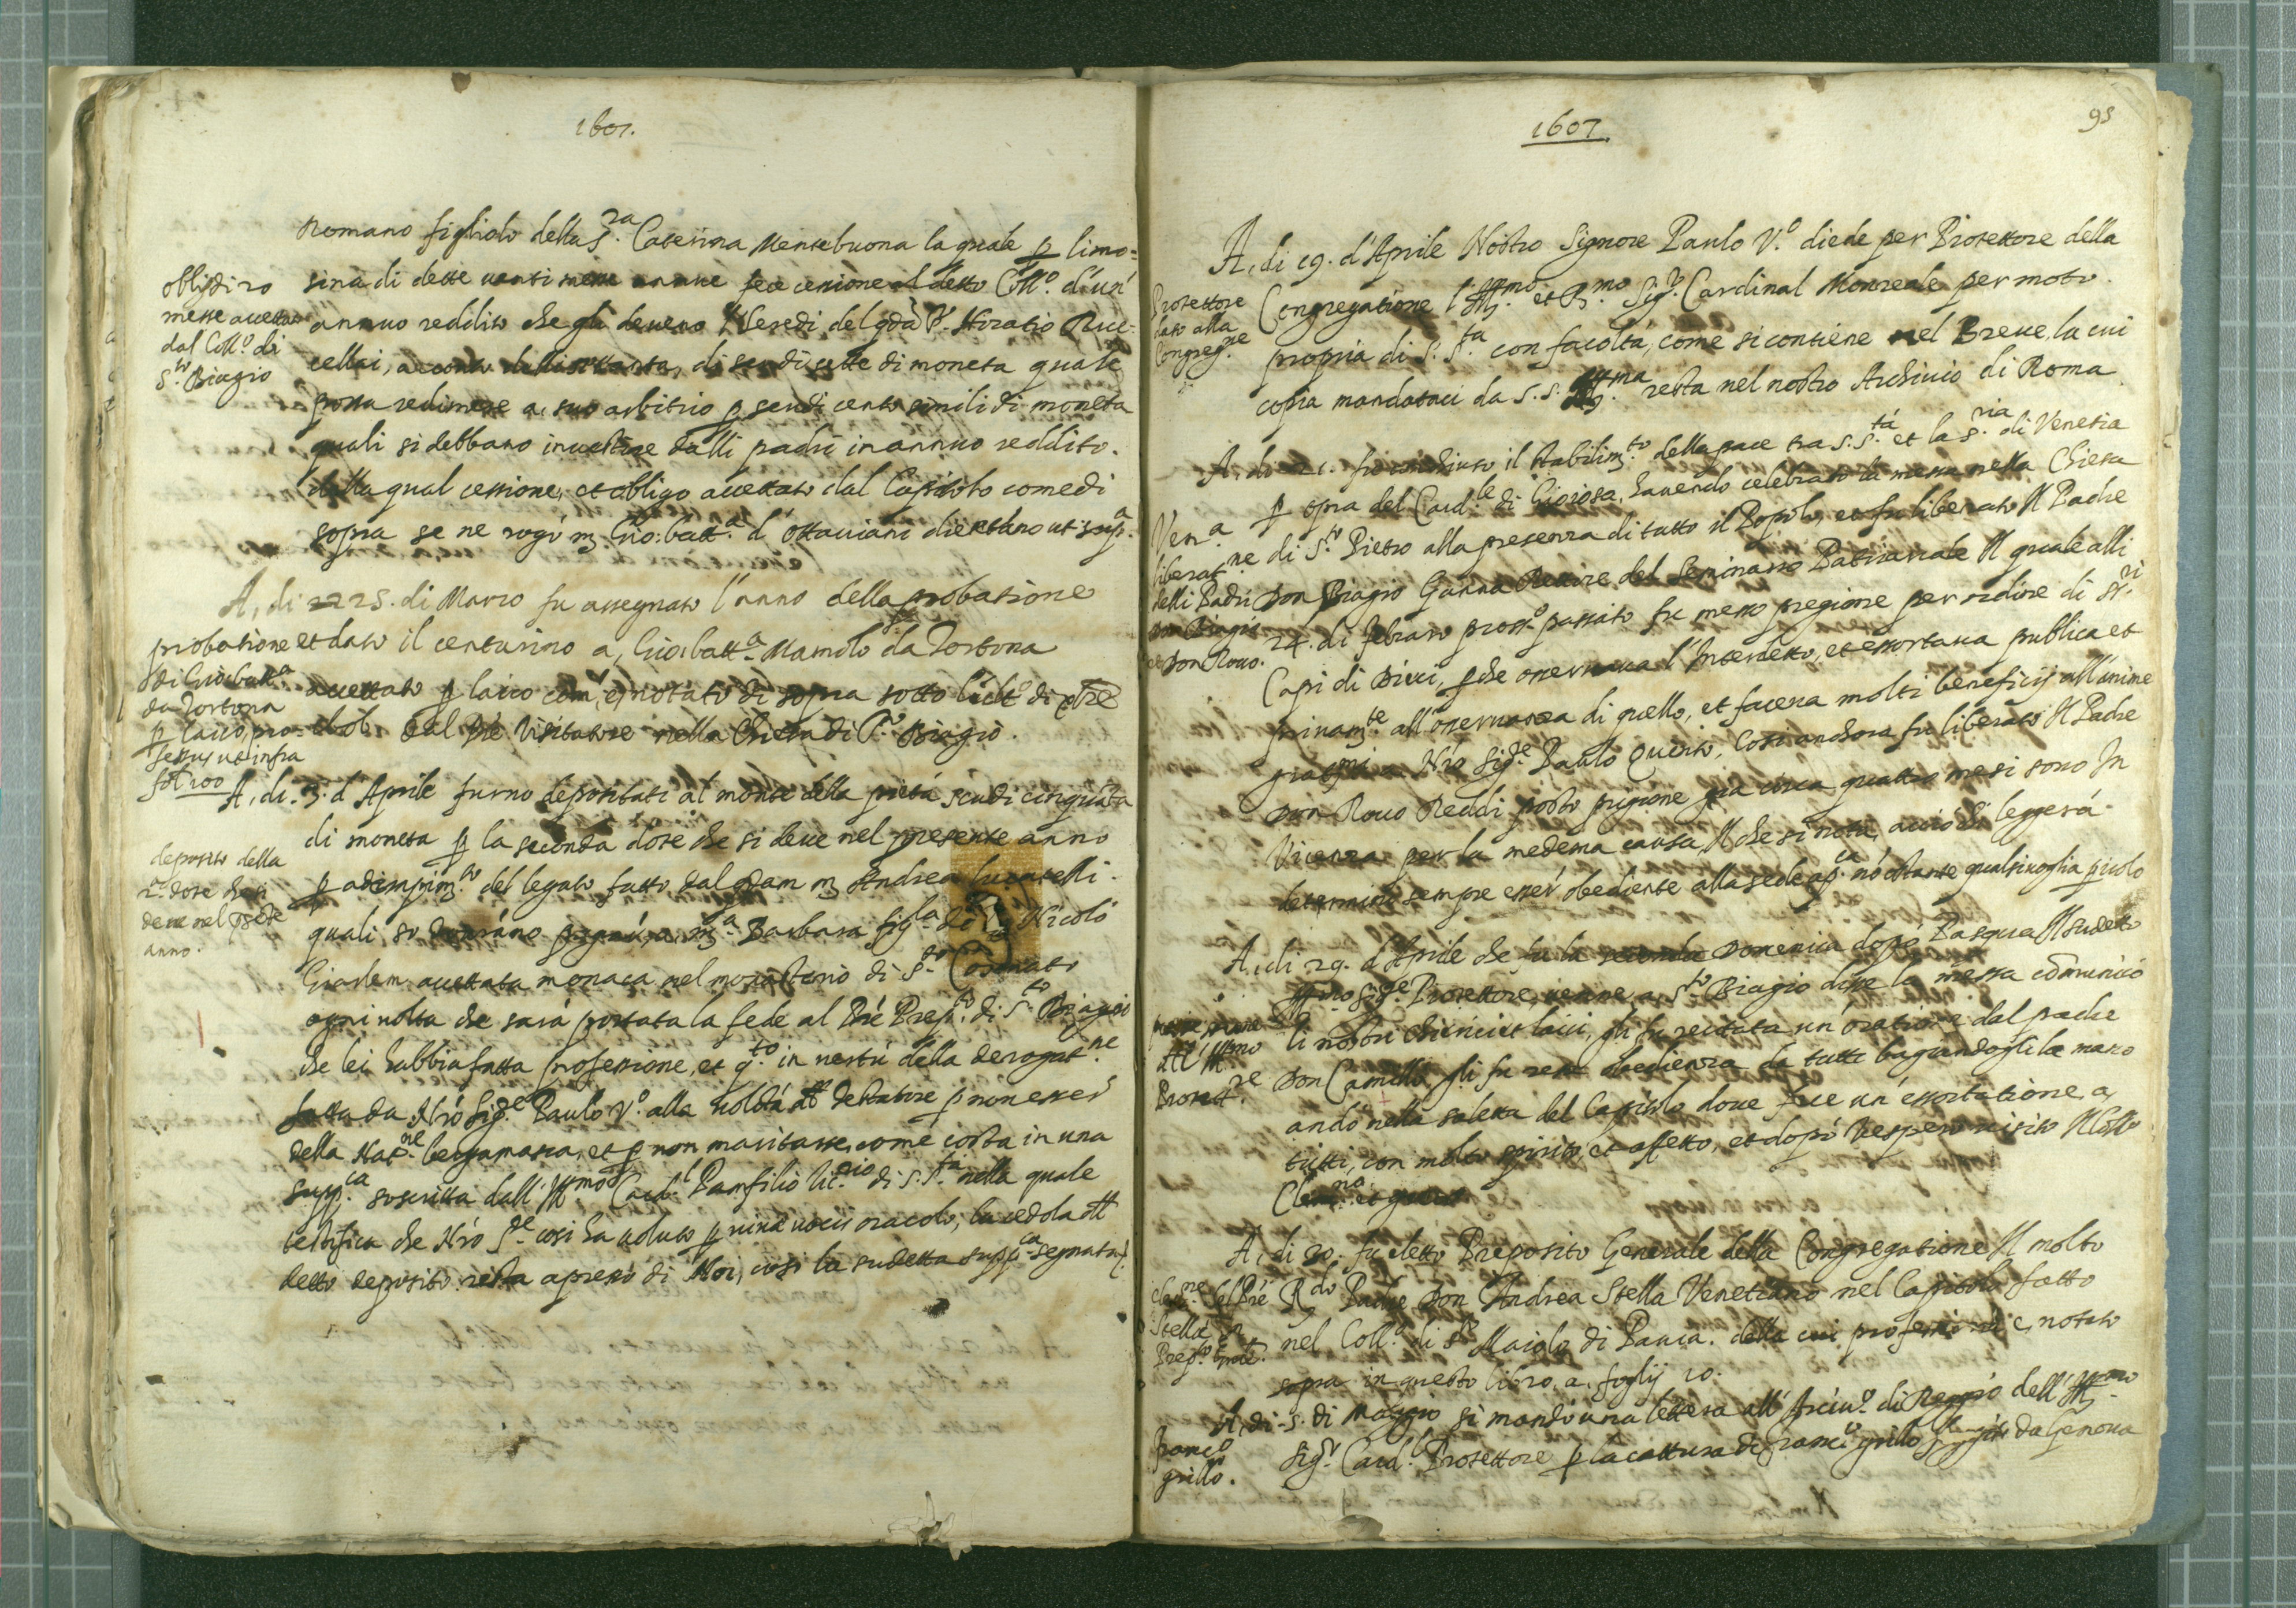 1607.
Romano figliolo della S.ra Caterina Mentebuona la quale p limo=
sina di dette venti messe annue fece cessione al detto Coll.o d'un'
annuo reddito che gli deveno l'Heredi del qdā S. Horatio Ruc=
cellai, a conto dell di scudi sette di moneta quale
possa redimere a, suo arbitrio p scudi cento simili di moneta
quali si debbano investire dalli padri in annuo reddito.
della qual cessione, et obligo accettato dal Capitolo come di
sopra se ne rogò m. Gio: batt.a d'Ottaviani die ut sup.a
obligo di 20
messe accettato
dal Coll.o di
S.to Biagio
A, di 25. di Marzo fu assegnato l'anno della probatione
et dato il centurino a, Gio: batt.a Mamolo da Tortona
accettato p laico com'è, notato di sopra sotto di
dal Prē Visitatore nella Chiesa di S.to Biagio.
probatione
di Gio: batt.a
da Tortona
p laico, pro=
fessus ut infra
fol 100
A, di. 3. d'Aprile furno depositati al monte della pietà scudi cinquāta
di moneta p la seconda dote che si deve nel presente anno
p adimpim.to del legato fatto dal qdam m. Andrea lucatelli.
quali si doverāno pagar', a, m.a Barbara fig.la di Nicolò
accettata monaca nel monasterio di S.to Cosmato
ogni volta che sarà portata la fede al Prē Prep.to di S.to Biagio
che lei habbia fatta professione, et q.to in vertù della derogat.ne
fatta da Nrō Sig.re Paulo V.o alla volōtà del testatore p non esser'
della Nat.ne bergamasca, et p non maritarse, come cōsta in una
supp.ca soscritta dall'Ill.mo Card.l Pamfilio Vic.rio di S. S.tà nella quale
testifica che Nrō S.re così ha voluto p vivæ vocis oracolo, la cedola del
detto deposito resta apresso di Noi, così la sudetta supp.ca segnata
deposito della
2.a dote che si
deve nel psēte
anno.
1607
95
A, di 19. d'Aprile Nostro Signore Paulo V.o diede per Protettore della
Congregatione l'Ill.mo et R.mo Sig.r Cardinal Monreale per moto
propria di S. S.tà con facoltà, come si contiene nel Breve, la cui
copia mandataci da S. S. Ill.ma resta nel nostro Archivio di Roma
Protettore
dato alla
Congreg.ne
A, di 21. fu conchiuso il stabilim.to della pace tra S. S.tà et la S.ria di Venetia
p opra del Card.le di Gioiosa, havendo celebrato la messa nella Chiesa
di S.to Pietro alla presenza di tutto il Popolo, et fu liberato Il Padre
Don Biagio Ganna Rettore del Seminario Patriarcale Il quale alli
24. di febraro pross.o passato fu messo pregione per ordine di SS.ri
Capi di Dieci, pche osservava l'Interdetto, et essortava publica et
privam.te all'osservanza di quello, et faceva molti beneficij all'anime
Nrō Sig.re Paulo Quinto, Così anchora fu liberato Il Padre
Don Rocco Reddi posto prigione già circa quattro mesi sono In
Vicenza per la medema causa, Il che si nota, acciò chi leggerà
determini sempre esser' obediente alla sede ap.ca nō ostante qualsivoglia picolo
Ven.a
liberat.ne
delli Padri
Don Biagio
et Don Rocco.
A, di 29. d'Aprile che fu la seconda Domenica dopò Pasqua Il sudetto
Ill.mo Sig.re Protettore, venne a, S.to Biagio disse la messa cōmunicò
li nostri Chierici et laici, gli fu recitata un'oratione dal padre
Don Camillo, gli fu resa obedienza da tutti bagiandogli la mano
andò nella saletta del Capitolo dove fece un'essortatione, a,
tutti, con molto spirito, et affetto, et dopò Vespero visitò Il Coll.o
Clem.no
All'Ill.mo
Protet.re
A, di 30. fu eletto Preposito Generale della Congregatione Il molto
R.do Padre Don Andrea Stella Venetiano nel Capitolo fatto
nel Coll.o di S.to Maiolo di Pavia. della cui professione è, notato
sopra in questo libro, a, foglij 10.
Elet.ne del Prē
Stella in
Prep.to Gnāle.
A, di - 5. di Maggio si mandò una lettera all'Arciv.o di Reggio dell'Ill.mo
Sig.r Card.l Protettore p la cattura di Franc.o grillo da Genova
Franc.o
grillo.